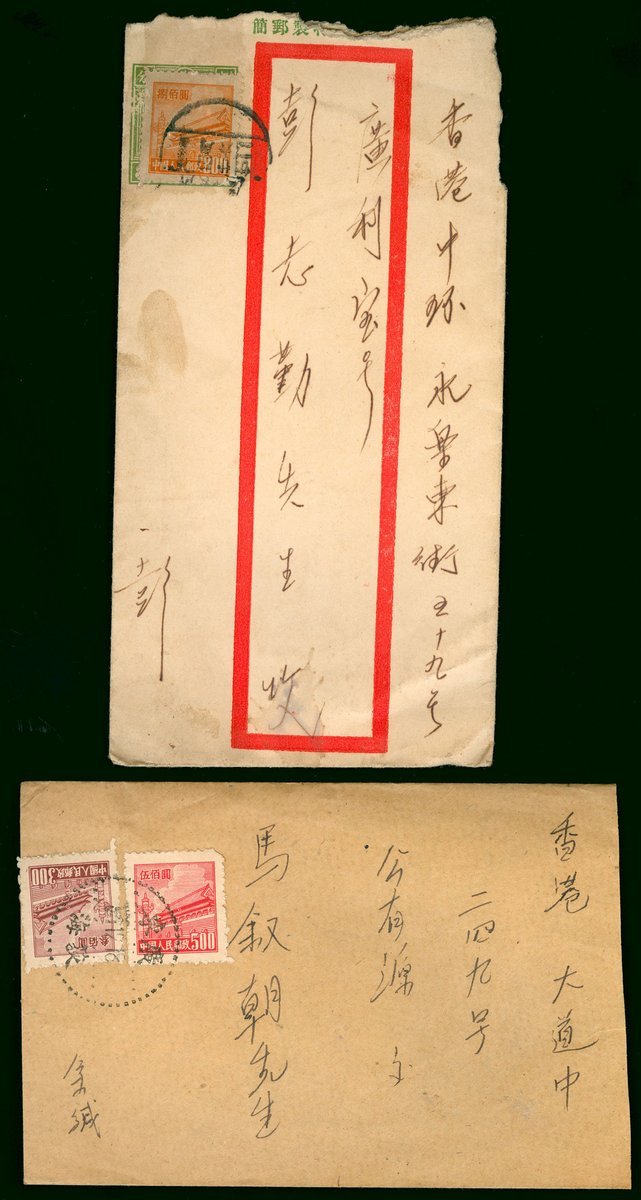 製郵簡
香港中环永樂東街五十九号
廣利宝号
彭志勤先生收
彭
捌佰圓
中国人民邮政
800
香港大道中
二四九号
公有源
馬叙朝先生
余缄
中國人民郵政
300
叁佰圓
伍佰圓
中國人民郵政
500